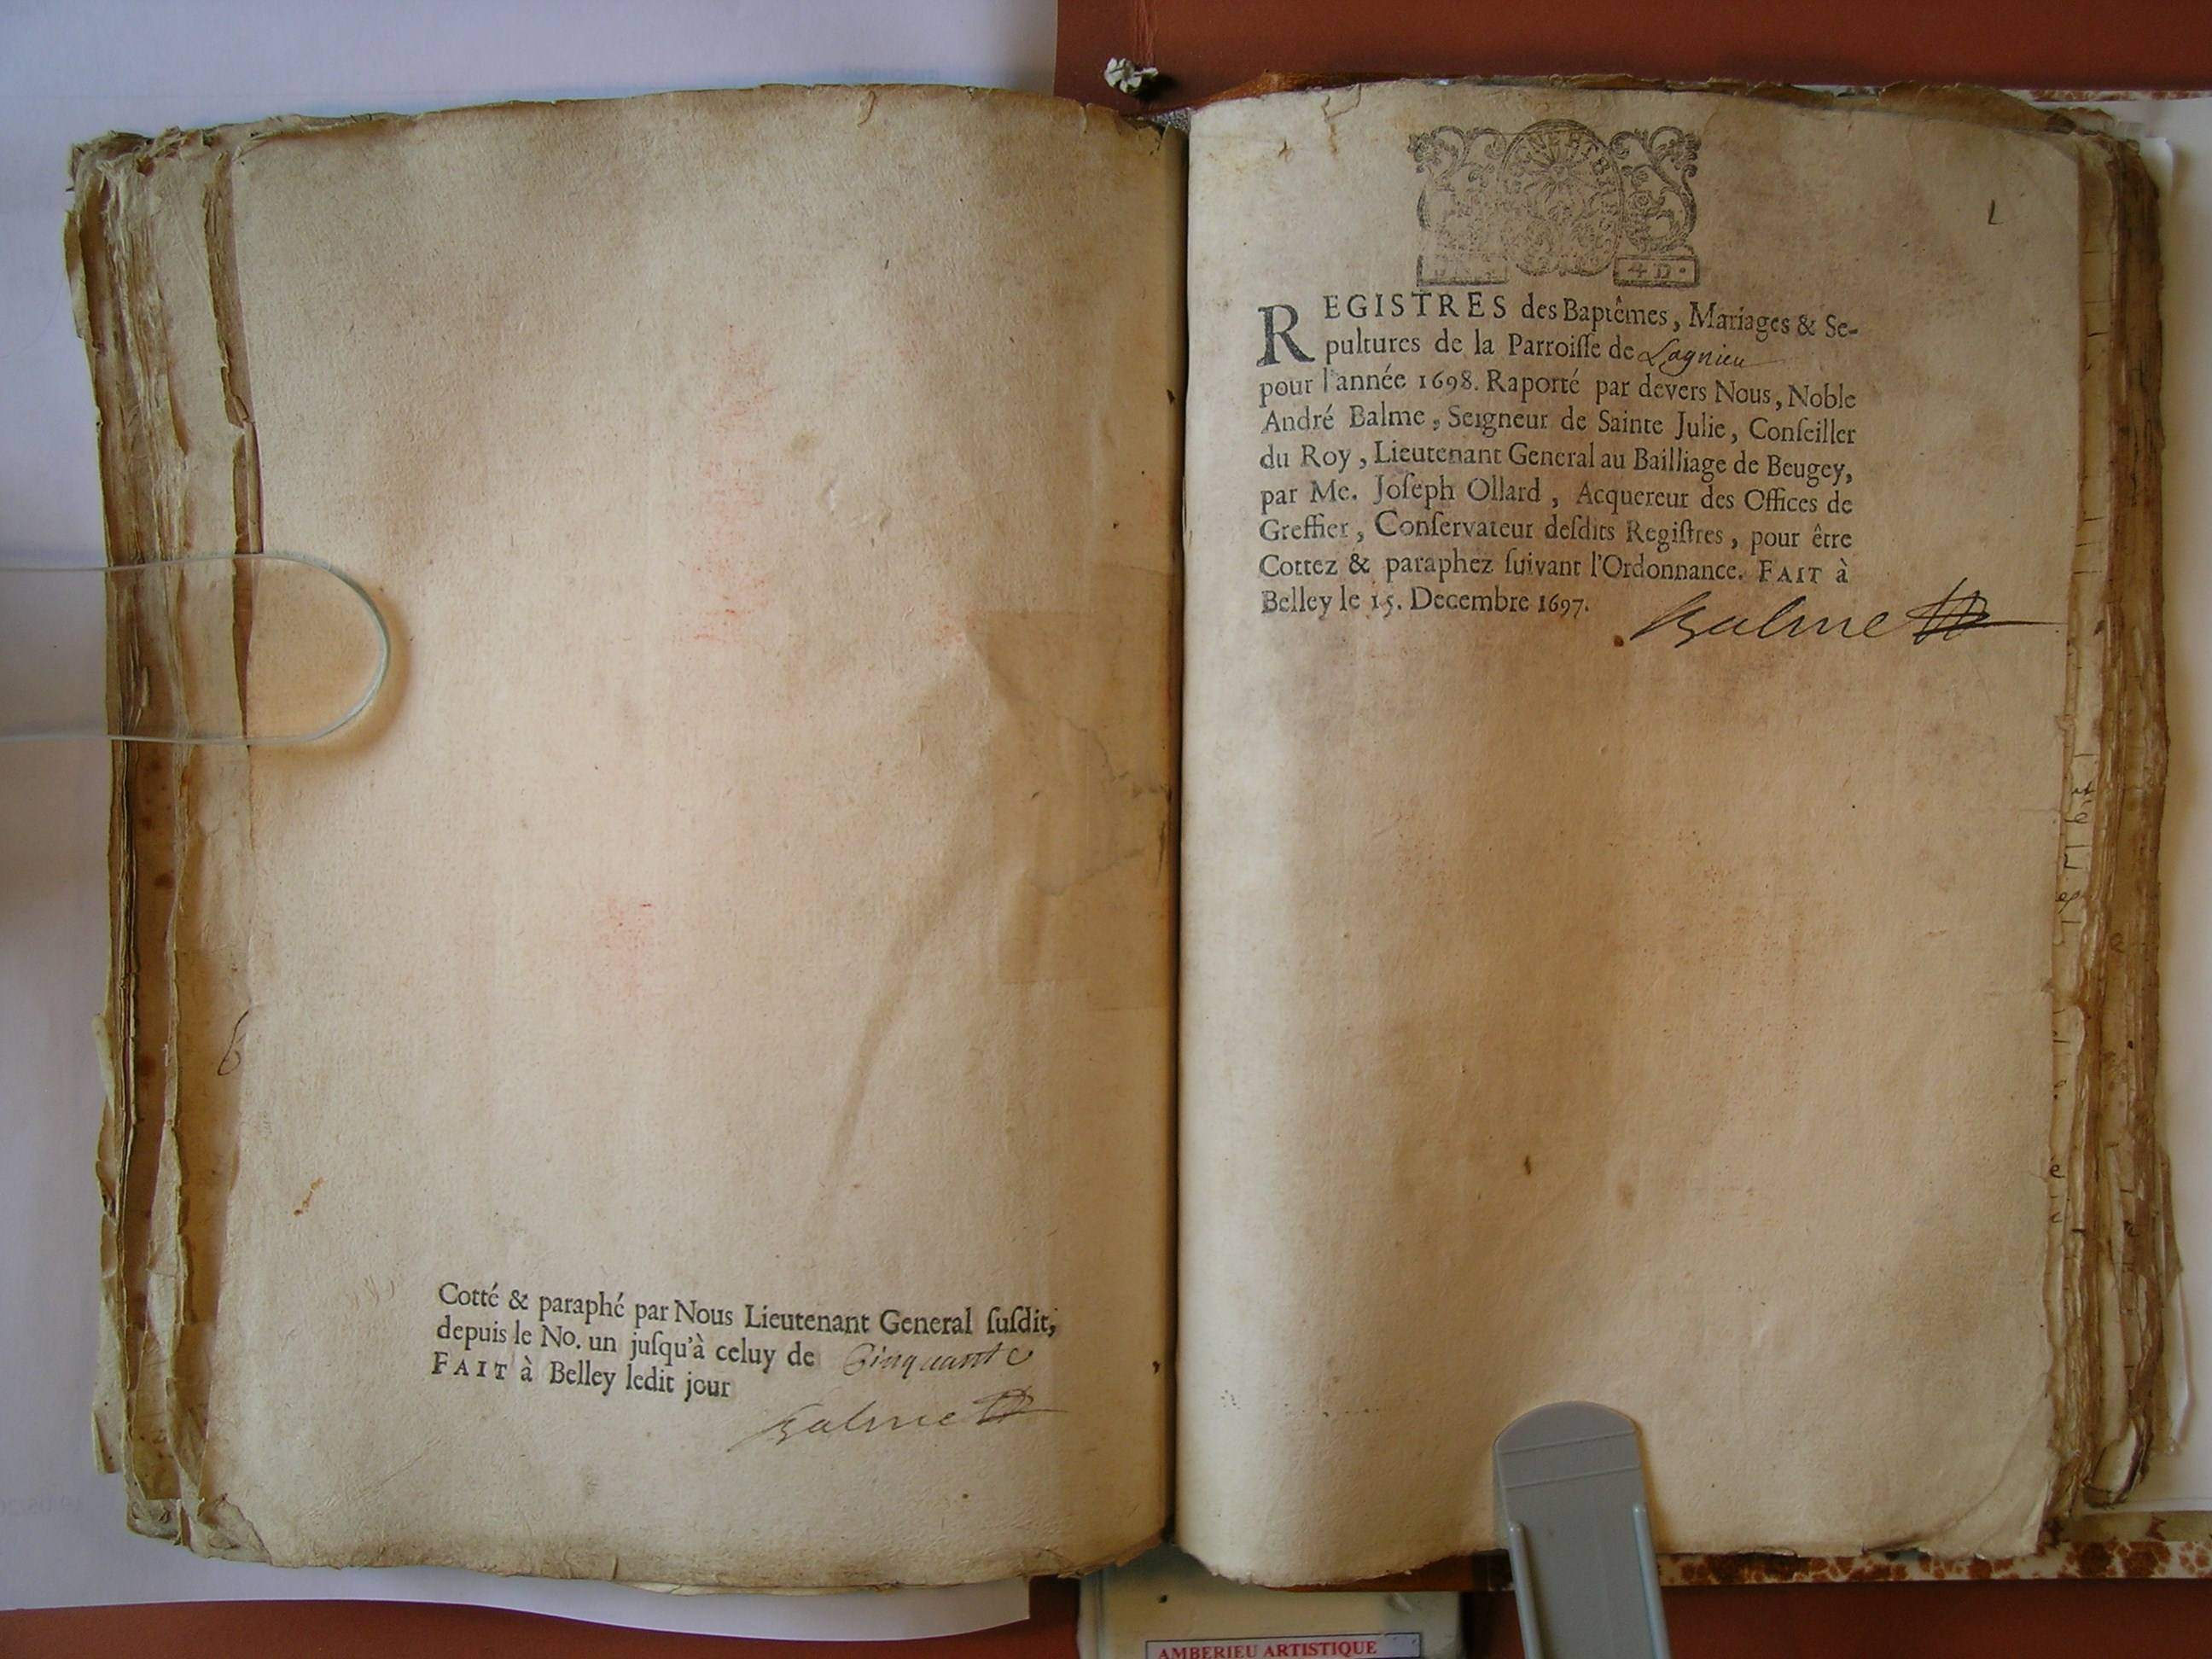 Cotté & paraphé par Nous Lieutenant General ſuſdit,
depuis le No. un juſqu'à celuy de Cinquante
FAIT à Belley ledit jour
Balme
1
4 D.
REGISTRES des Baptêmes, Mariages & Se-
pultures de la Parroiſſe de Lagnieu
pour l'année 1698. Raporté par devers Nous, Noble
André Balme, Seigneur de Sainte Julie, Conſeiller
du Roy, Lieutenant General au Bailliage de Beugey,
par Me. Joſeph Ollard, Acquereur des Offices de
Greffier, Conſervateur deſdits Regiſtres, pour être
Cottez & paraphez ſuivant l'Ordonnance. FAIT à
Belley le 15. Decembre 1697.
Balme
AMBERIEU ARTISTIQUE